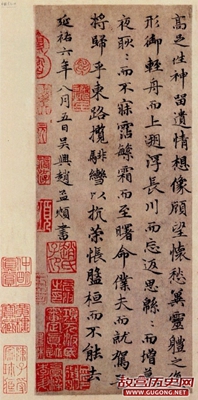 高足往神留遺情想像顧望懷愁冀靈體之復
形御輕舟而上遡浮長川而忘返思緜〻而增慕
夜耿〻而不寐霑繁霜而至曙命僕夫而就駕
將歸乎東路攬騑轡以抗策悵盤桓而不能去
延祐六年八月五日吳興趙孟頫書
GUGONG.ORG